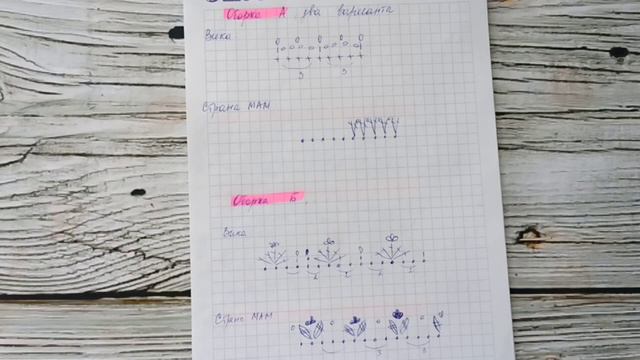 Оборка А два варианта
Вика
3 3
Страна МАМ
Оборка Б.
Вика
2 2 2
Страна МАМ
3 3